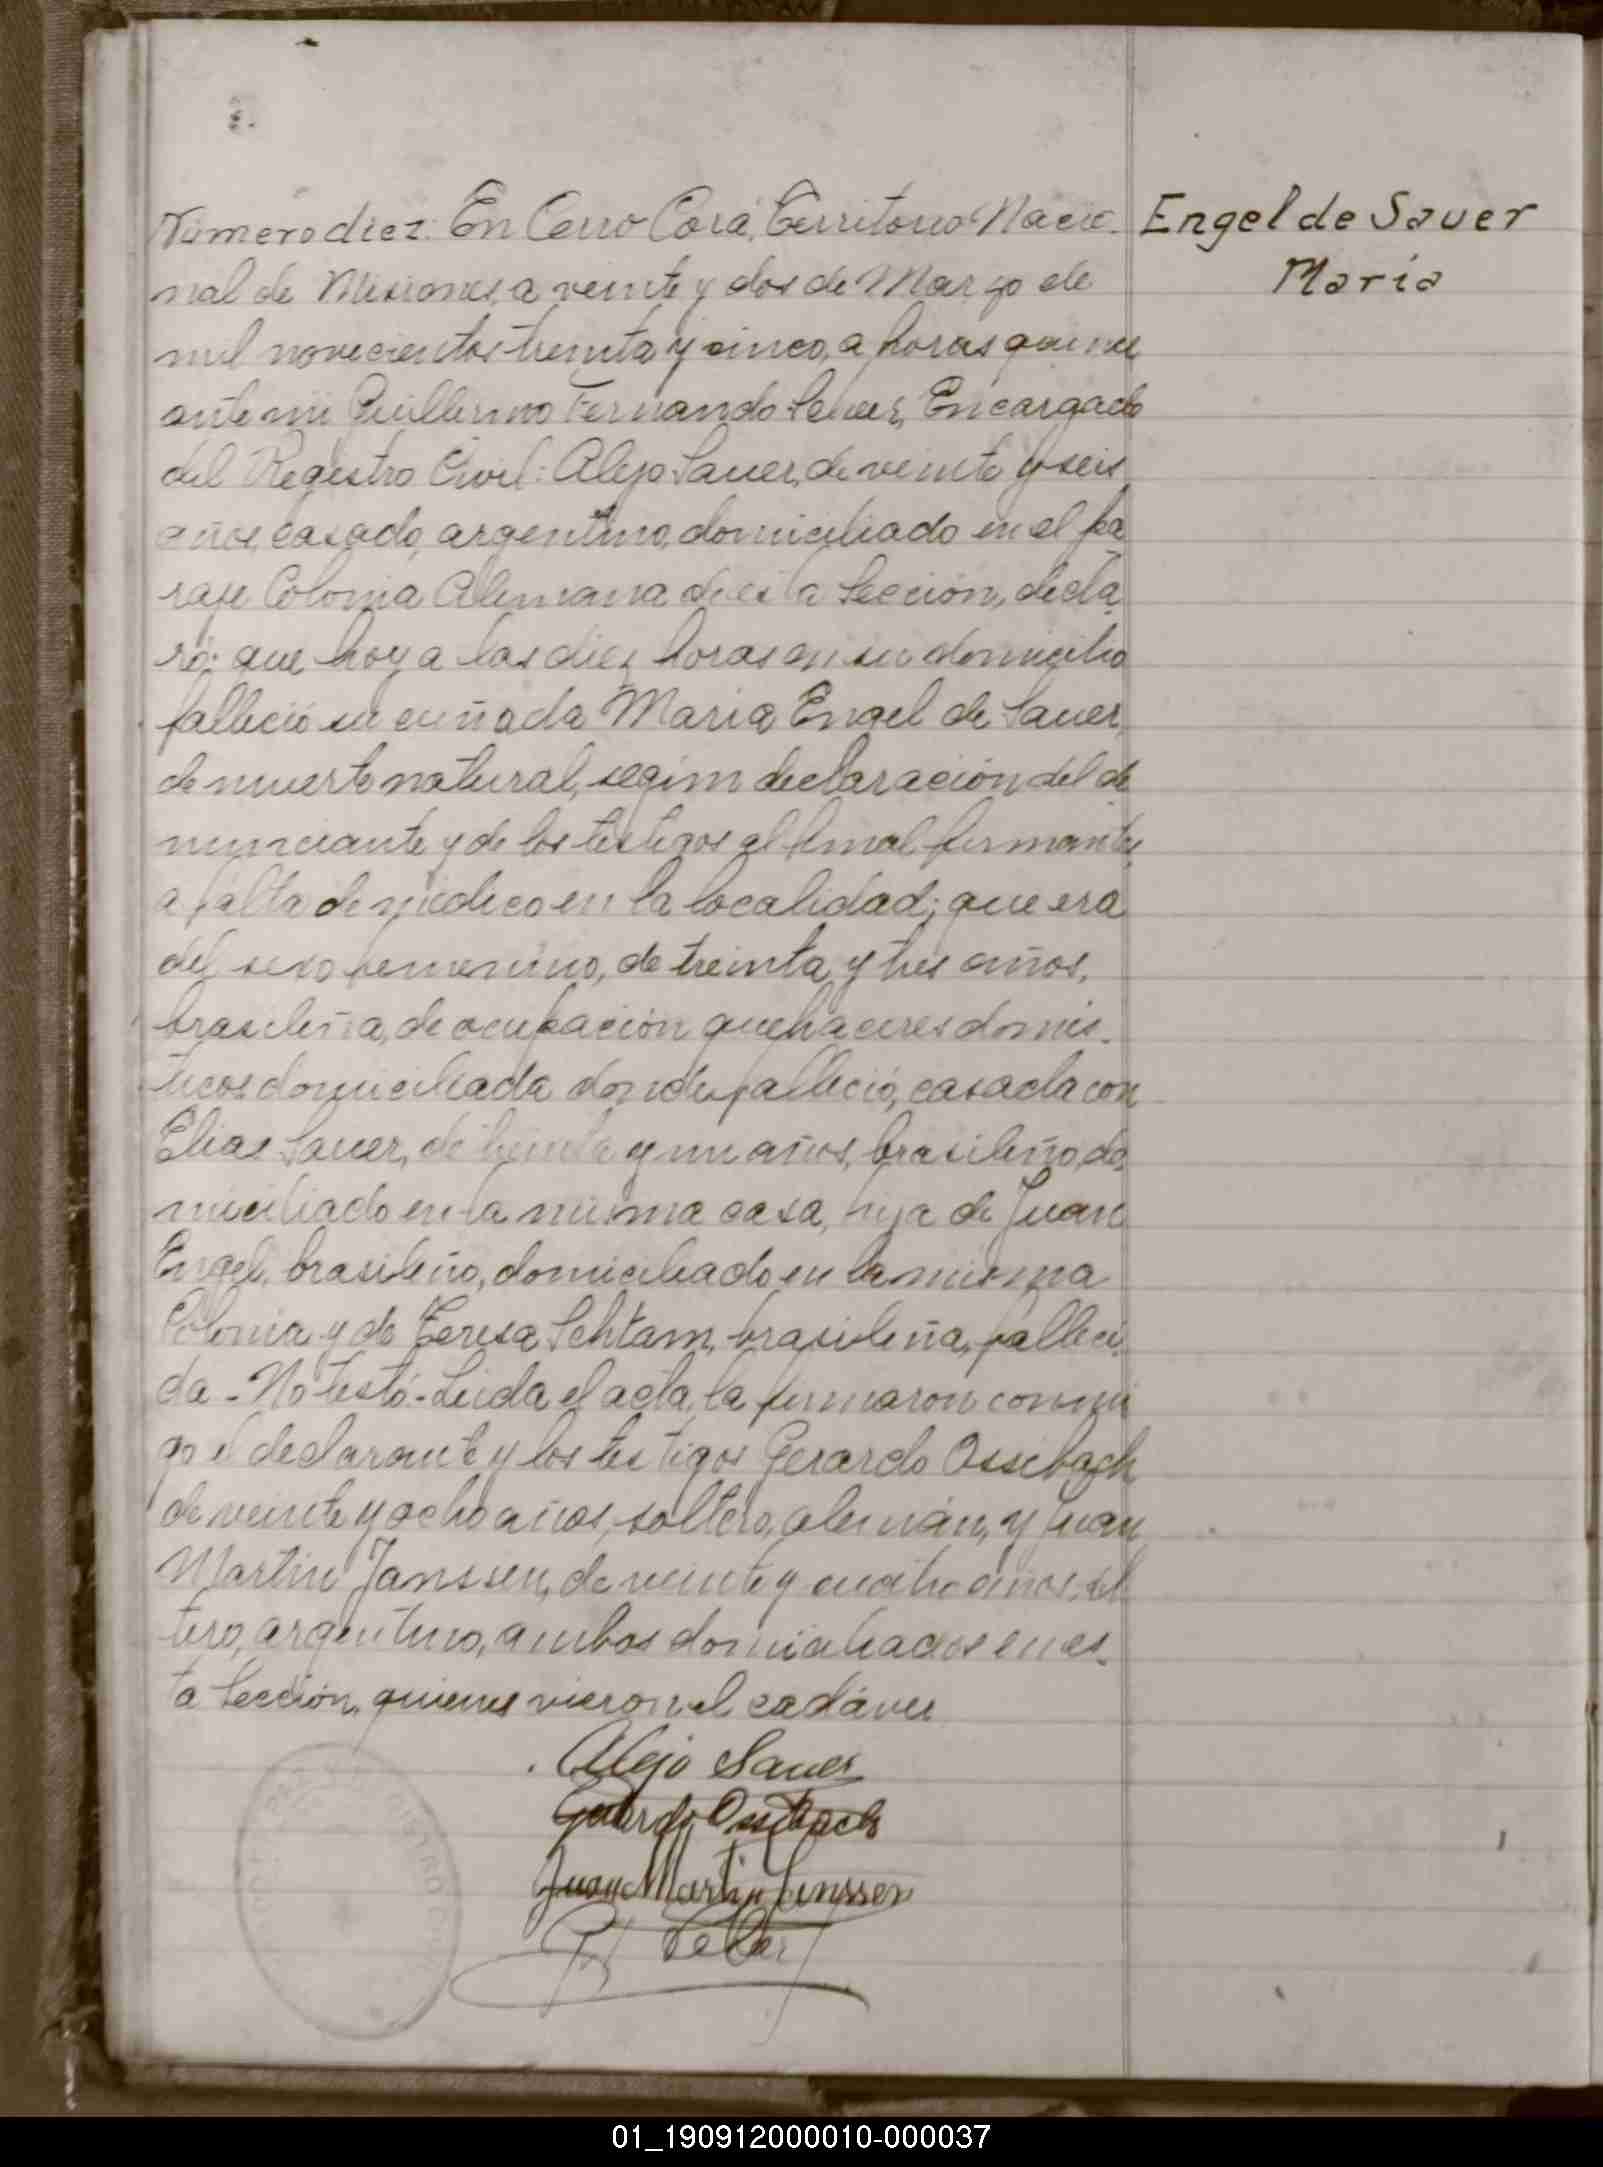 Número diez: En Cerro Corá, Territorio Nacio-
nal de Misiones, a veinte y dos de Marzo de
mil novecientos treinta y cinco, a horas quince
ante mi Guillermo Fernando Encargado
del Registro Civil: Alejo Sauer, de veinte y seis
años, casado, argentino, domiciliado en el pa-
raje Colonia Alemana de esta Sección, decla-
ró: que hoy a las diez horas en su domicilio
falleció su cuñada Maria Engel de Sauer,
de muerte natural, segun declaración del de-
nunciante y de los testigos al final firmantes,
a falta de médico en la localidad; que era
del sexo femenino, de treinta y tres años,
brasileña, de ocupación quehaceres domés-
ticos domiciliada donde falleció, casada con
Elias Sauer, de treinta y un años, brasileño, do-
miciliado en la misma casa, hija de Juan
Engel, brasileño, domiciliado en la misma
Colonia y de Teresa Schtam, brasileña, falleci-
da - No testó - Leida el acta, la firmaron conmi-
go el declarante y los testigos Gerardo Ossebach
de veinte y ocho años, soltero, alemán, y Juan
Martin Janssen, de veinte y cuatro años, sol-
tero, argentino, ambos domiciliados en es-
ta Sección, quienes vieron el cadáver
Alejo Sauer
Gerardo Ossebach
Juan Martin Janssen
Engel de Sauer
Maria
01_190912000010-000037